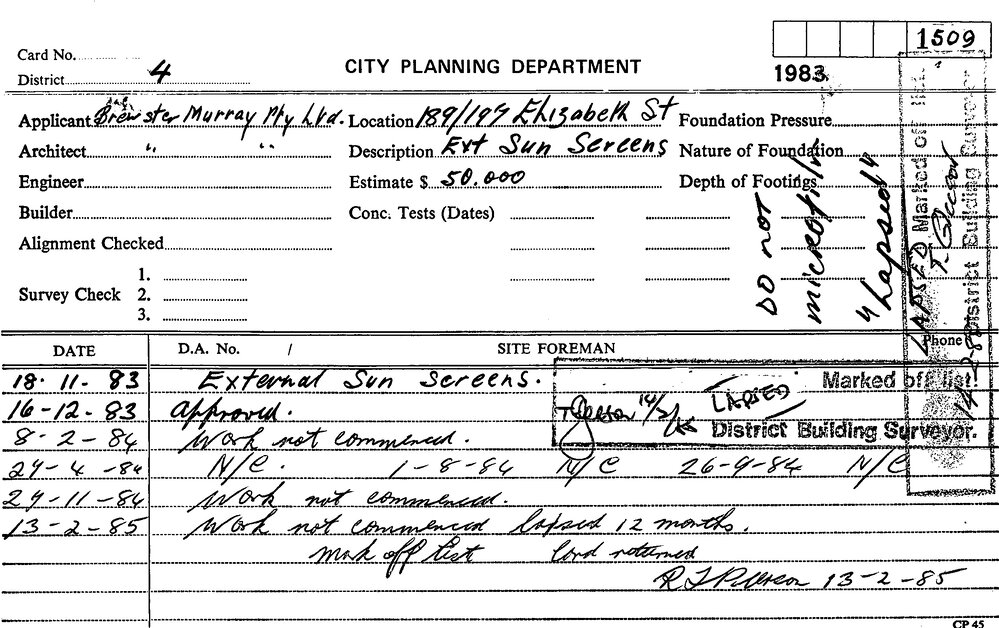 1509
Card No.
District 4
CITY PLANNING DEPARTMENT
1983
Applicant Brewster Murray Pty Ltd. Location 189/197 Elizabeth St Foundation Pressure
Architect " " Description Ext Sun Screens Nature of Foundation
Engineer Estimate $ 50.000 Depth of Footings
Builder Conc. Tests (Dates)
Alignment Checked
1.
Survey Check 2.
3.
DO NOT
microfilm
4 Lapsed 14
LAPSED Marked off list.
District Building Surveyor
Phone
DATE D.A. No. / SITE FOREMAN
18. 11 - 83 External Sun Screens.
Marked off list.
16-12-83 Approved.
14/2/85 LAPSED
District Building Surveyor.
8-2-84 Work not commenced.
24-4-84 N/C. 1-8-84 N/C 26-9-84 N/C
29-11-84 Work not commenced.
13-2-85 Work not commenced lapsed 12 months.
Mark off list Card returned
13-2-85
CP 45